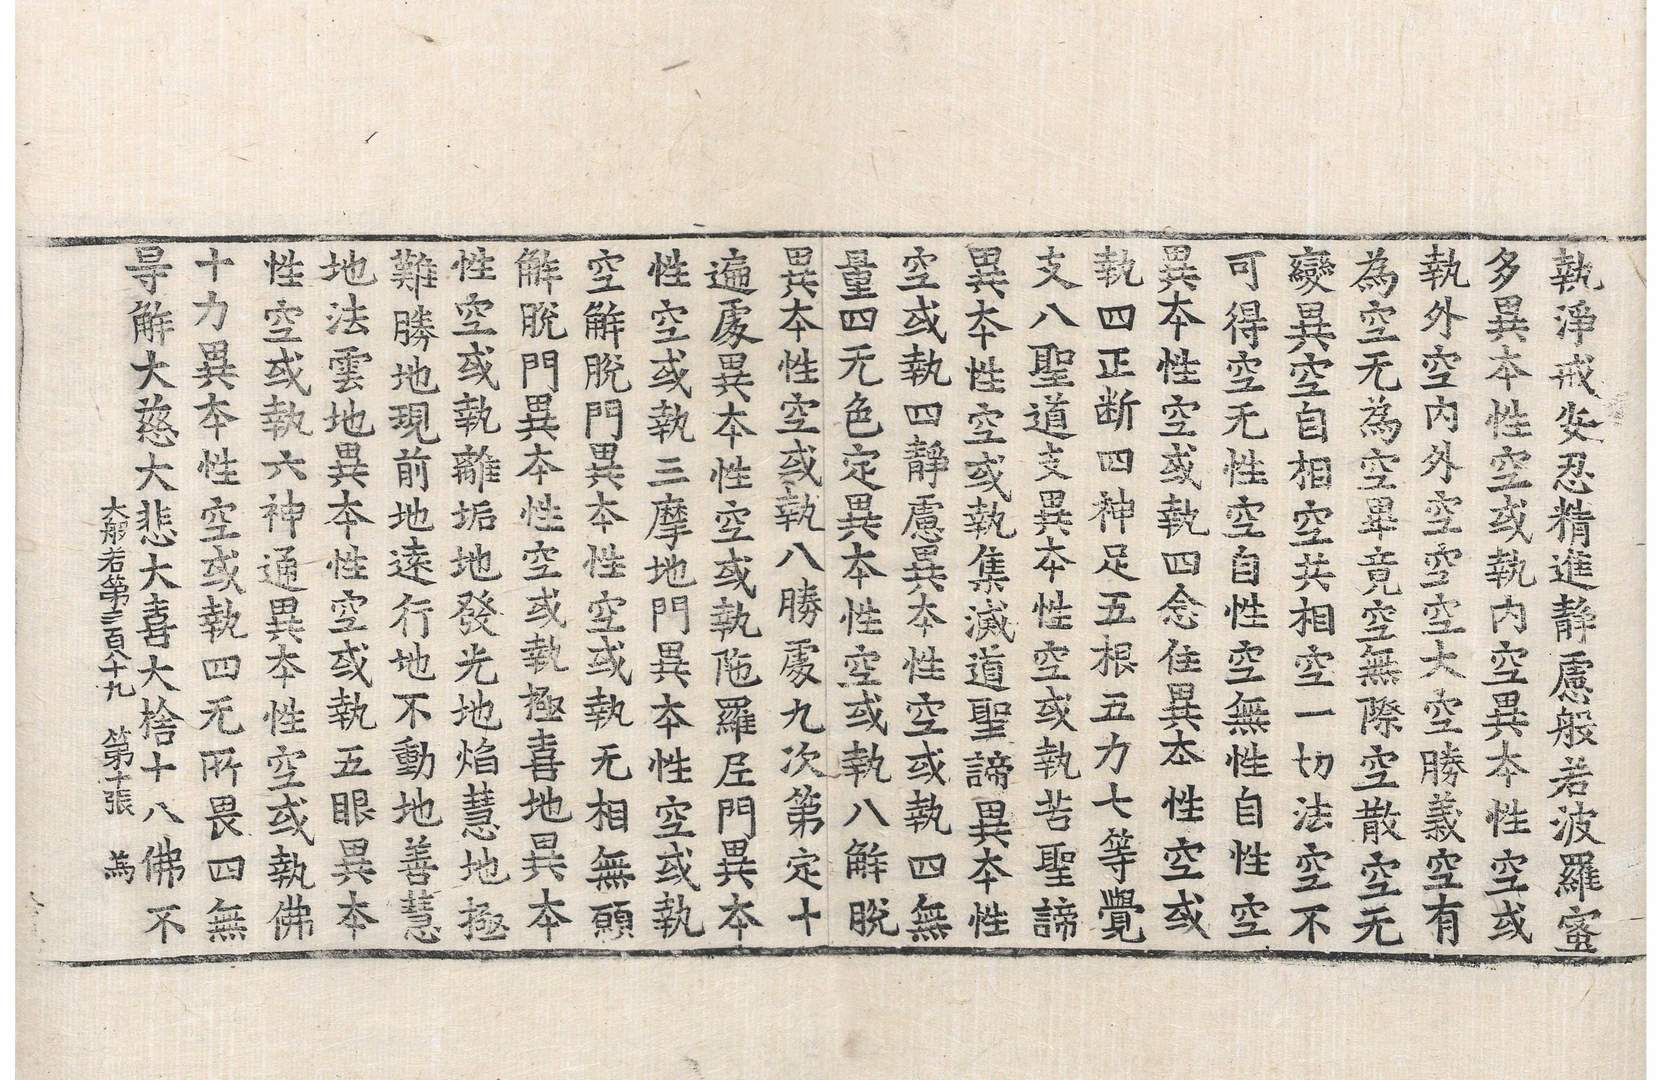 執淨戒安忍精進静慮般若波羅蜜
多異本性空或執内空異本性空或
執外空内外空空空大空勝義空有
為空无為空畢竟空無際空散空无
變異空自相空共相空一切法空不
可得空无性空自性空無性自性空
異本性空或執四念住異本性空或
執四正断四神足五根五力七等覺
支八聖道支異本性空或執苦聖諦
異本性空或執集滅道聖諦異本性
空或執四靜慮異本性空或執四無
量四无色定異本性空或執八解脫
異本性空或執八勝處九次第定十
遍處異本性空或執陁羅尼門異本
性空或執三摩地門異本性空或執
空解脫門異本性空或執无相無願
解脫門異本性空或執極喜地異本
性空或執離垢地發光地焰慧地極
難勝地現前地遠行地不動地善慧
地法雲地異本性空或執五眼異本
性空或執六神通異本性空或執佛
十力異本性空或執四无所畏四無
㝵解大慈大悲大喜大捨十八佛不
大般若第三百八十九　第十張　為